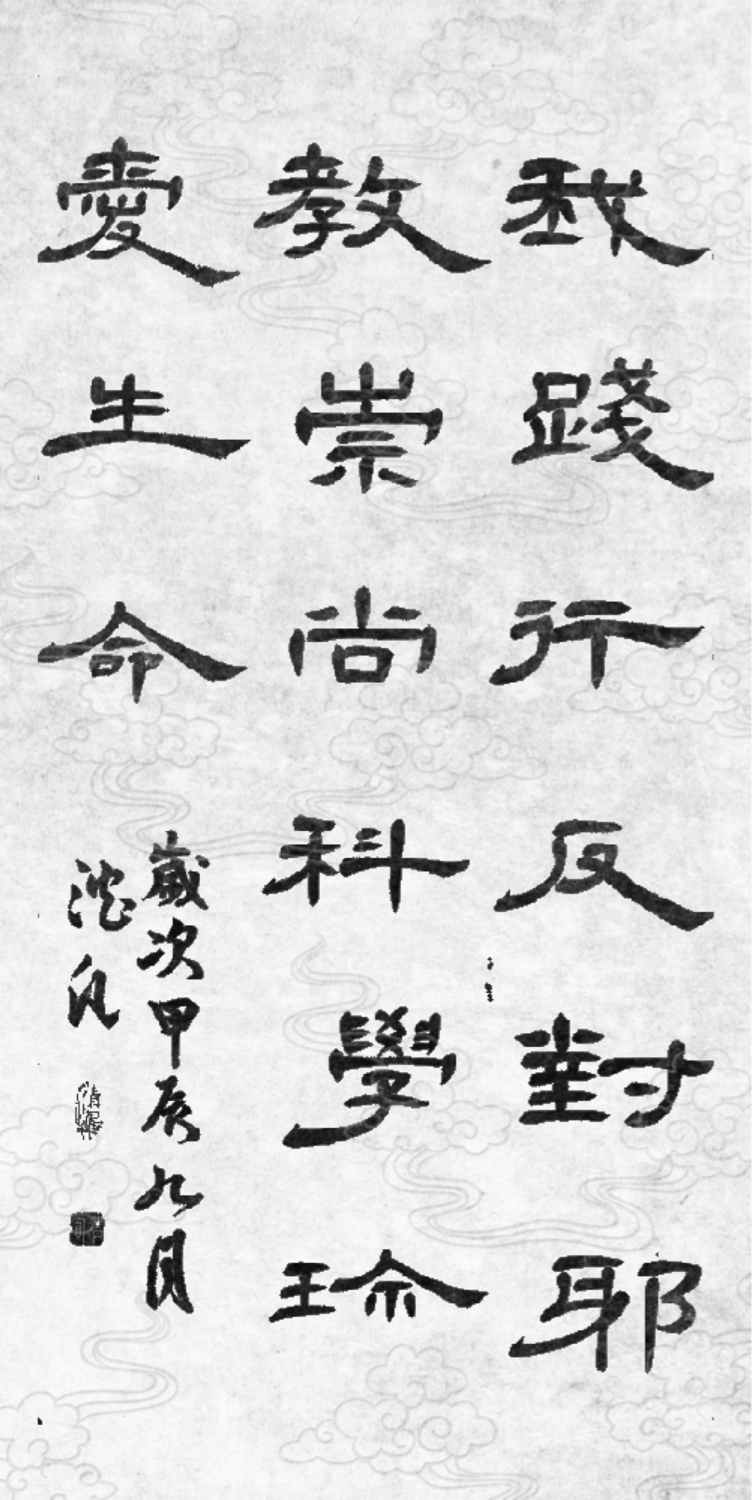 我踐行反對邪
教崇尚科學珎
愛生命
歲次甲辰九月